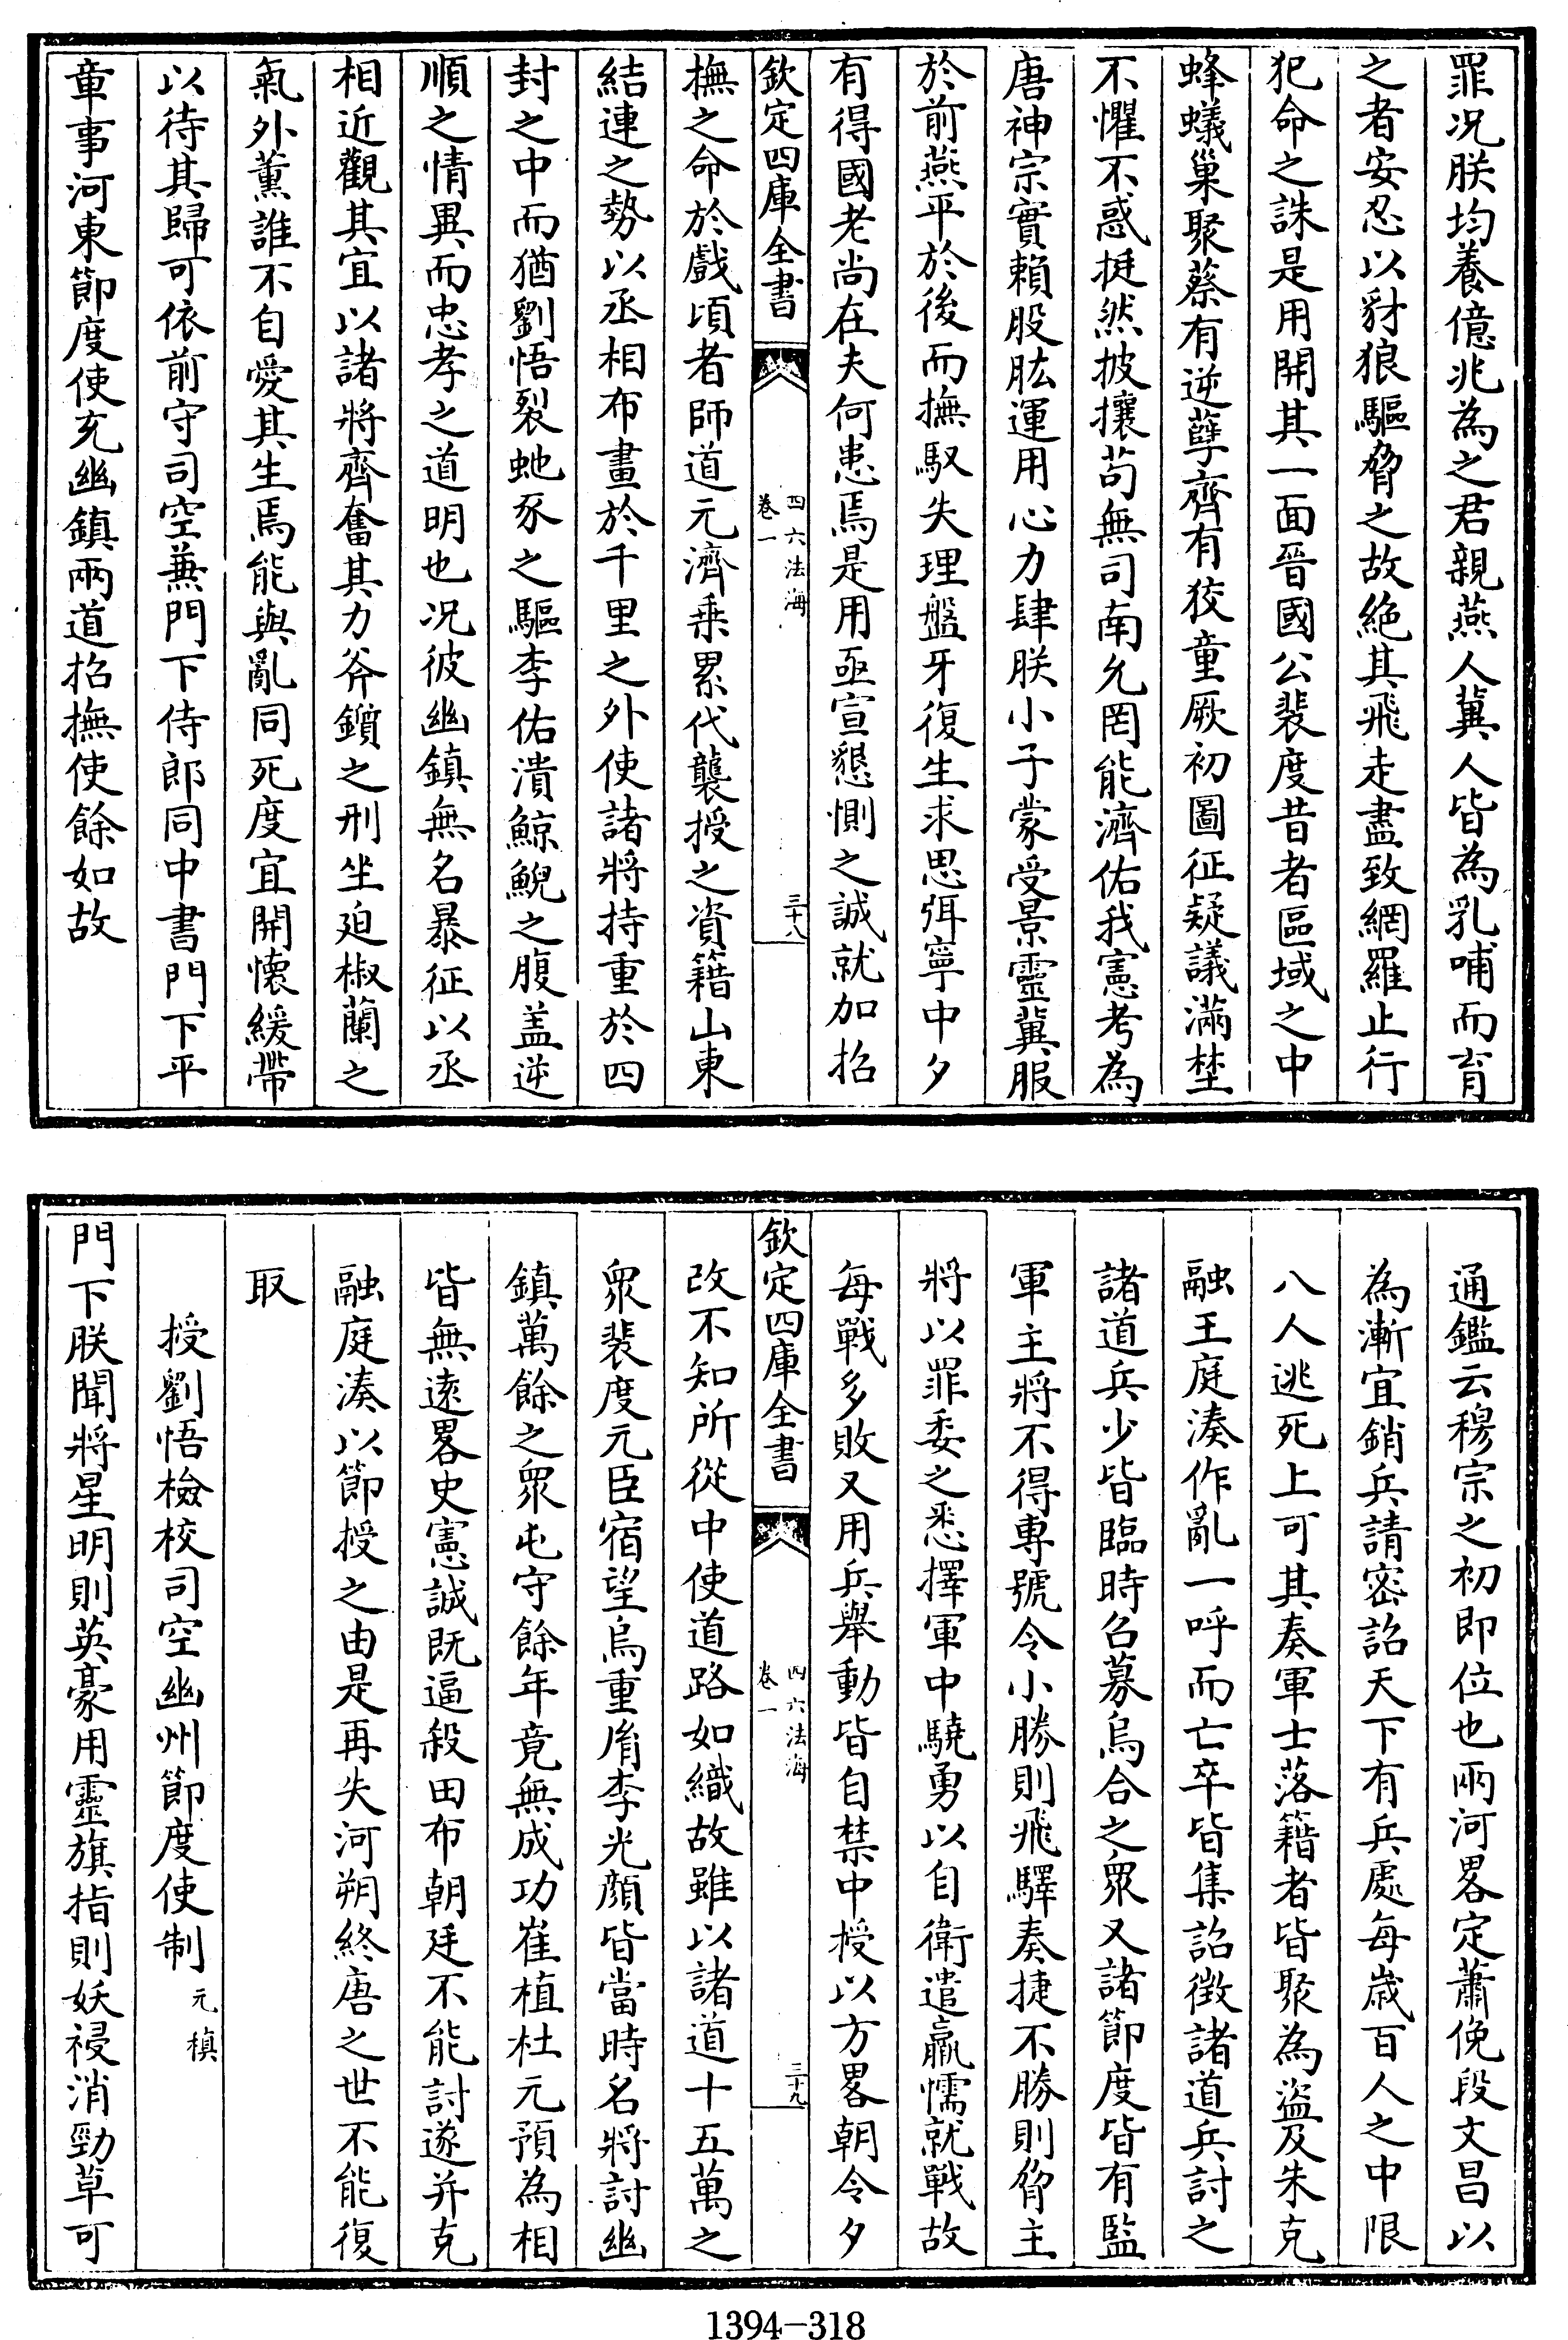 罪况朕均養億兆為之君親燕人冀人皆為乳哺而育
之者安忍以豺狼驅脅之故絶其飛走盡致網羅止行
犯命之誅是用開其一面晉國公裴度昔者區域之中
蜂蟻巢聚蔡有逆孽齊有狡童厥初圖征疑議滿埜
不懼不惑挺然披攘茍無司南允罔能濟佑我憲考為
唐神宗實賴股肱運用心力肆朕小子蒙受景靈冀服
於前燕平於後而撫馭失理盤牙復生求思弭寧中夕
有得國老尚在夫何患焉是用亟宣懇惻之誠就加招
欽定四庫全書
四六法海
卷一
三十八
撫之命於戲頃者師道元濟乗累代襲授之資籍山東
結連之勢以丞相布畫於千里之外使諸將持重於四
封之中而猶劉悟裂虵豕之驅李佑潰鯨鯢之腹盖逆
順之情異而忠孝之道明也况彼幽鎮無名暴征以丞
相近觀其宜以諸將齊奮其力斧鑕之刑坐廹椒蘭之
氣外薫誰不自愛其生焉能與亂同死度宜開懷緩帶
以待其歸可依前守司空兼門下侍郎同中書門下平
章事河東節度使充幽鎮兩道招撫使餘如故
通鑑云穆宗之初即位也兩河畧定蕭俛段文昌以
為漸宜銷兵請密詔天下有兵處每歲百人之中限
八人逃死上可其奏軍士落籍者皆聚為盜及朱克
融王庭湊作亂一呼而亡卒皆集詔徴諸道兵討之
諸道兵少皆臨時召募烏合之衆又諸節度皆有監
軍主將不得專號令小勝則飛驛奏捷不勝則脅主
將以罪委之悉擇軍中驍勇以自衛遣羸懦就戰故
每戰多敗又用兵舉動皆自禁中授以方畧朝令夕
欽定四庫全書
四六法海
卷一
三十九
改不知所從中使道路如織故雖以諸道十五萬之
衆裴度元臣宿望烏重𦙍李光顔皆當時名將討幽
鎮萬餘之衆屯守餘年竟無成功崔植杜元預為相
皆無逺畧史憲誠既逼殺田布朝廷不能討遂并克
融庭湊以節授之由是再失河朔終唐之世不能復
取
授劉悟檢校司空幽州節度使制 元稹
門下朕聞將星明則英豪用靈旗指則妖祲消勁草可
1394-318